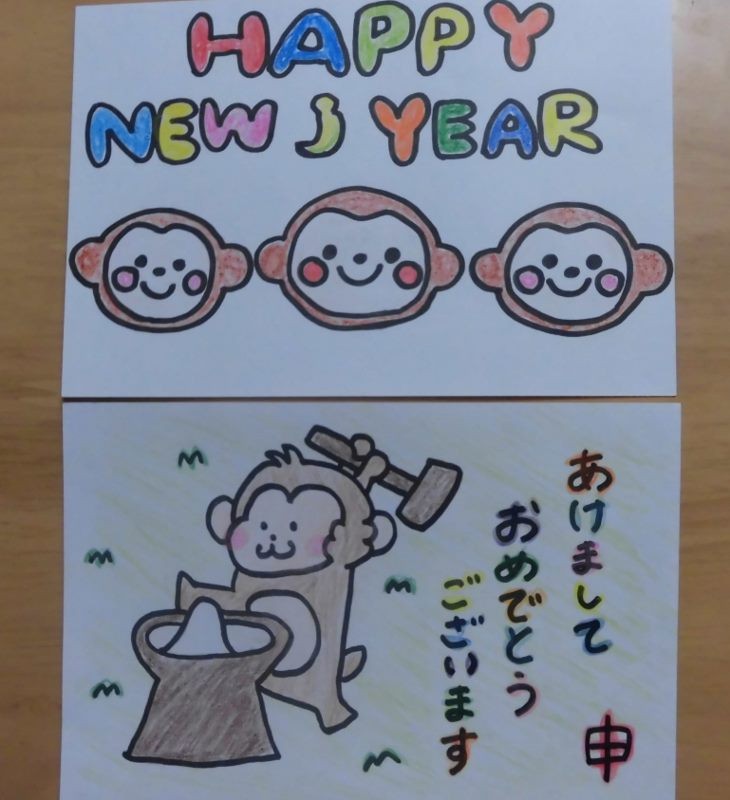 HAPPY
NEW YEAR
あけまして
おめでとう
ございます
申